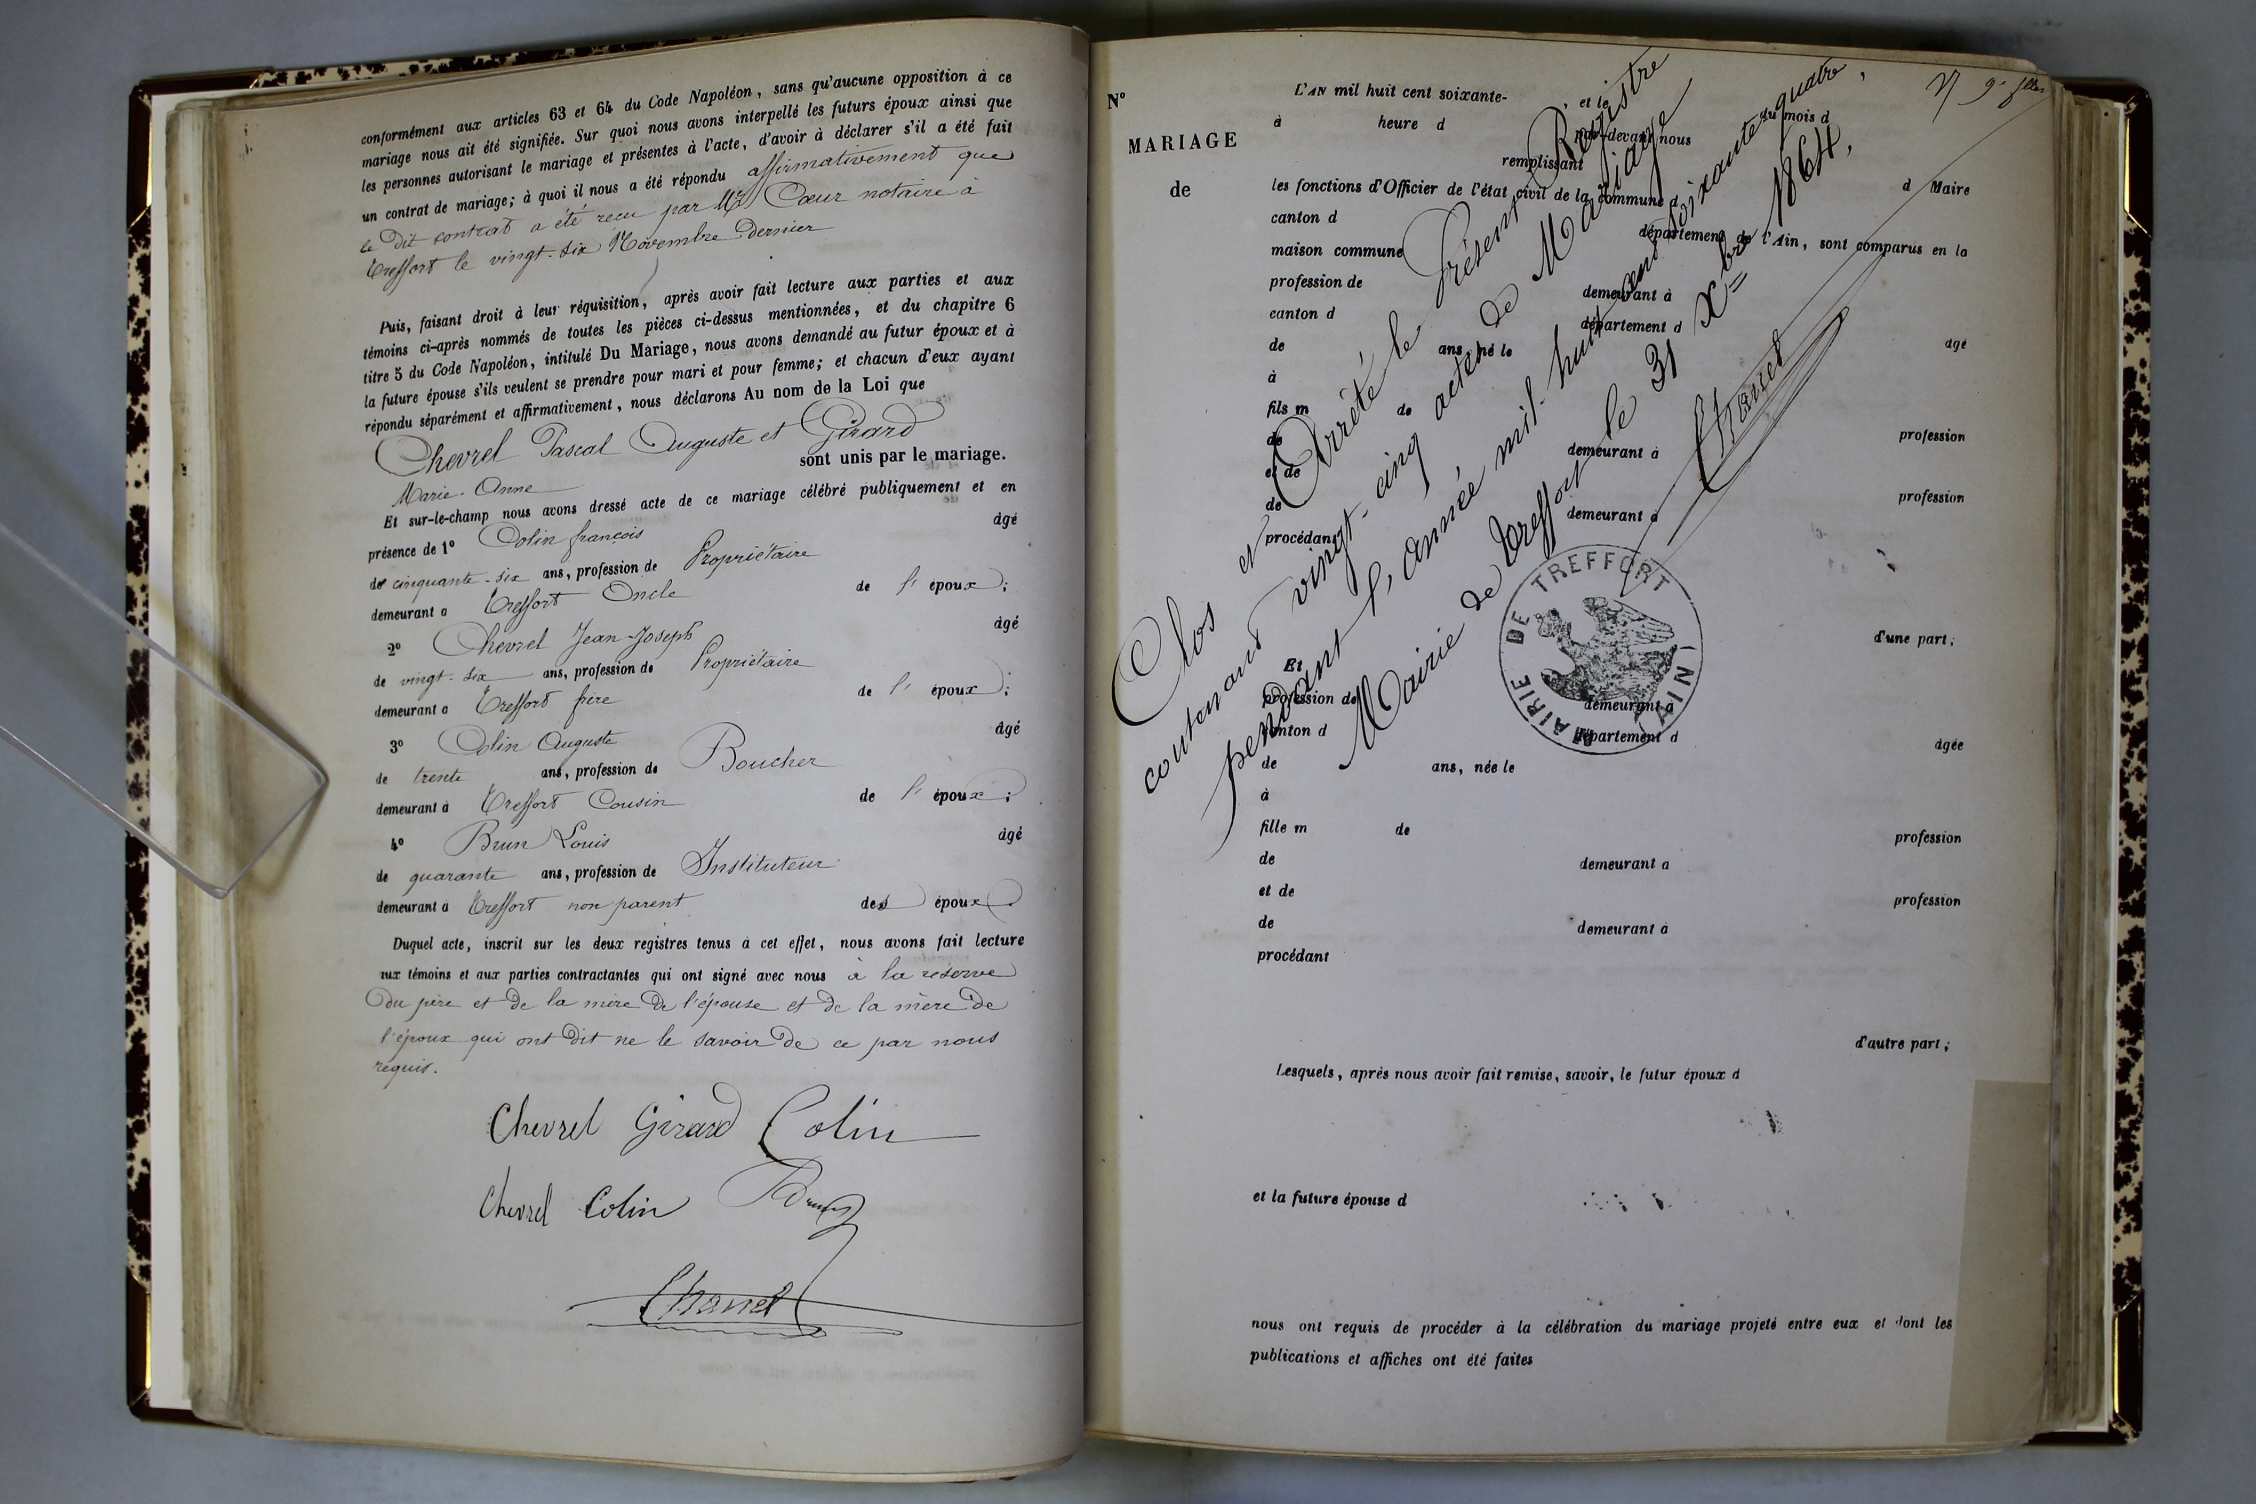 conformément aux articles 63 et 64 du Code Napoléon, sans qu'aucune opposition à ce
mariage nous ait été signifiée. Sur quoi nous avons interpellé les futurs époux ainsi que
les personnes autorisant le mariage et présentes à l'acte, d'avoir à déclarer s'il a été fait
un contrat de mariage; à quoi il nous a été répondu affirmativement que
le dit contrat a été reçu par Me Cœur notaire à
Treffort le vingt-six Novembre dernier
Puis, faisant droit à leur réquisition, après avoir fait lecture aux parties et aux
témoins ci-après nommés de toutes les pièces ci-dessus mentionnées, et du chapitre 6
titre 5 du Code Napoléon, intitulé Du Mariage, nous avons demandé au futur époux et à
la future épouse s'ils veulent se prendre pour mari et pour femme; et chacun d'eux ayant
répondu séparément et affirmativement, nous déclarons Au nom de la Loi que
Chevrel Pascal Auguste et Girard
sont unis par le mariage.
Marie-Anne
Et sur-le-champ nous avons dressé acte de ce mariage célébré publiquement et en
présence de 1° Colin françois âgé
de cinquante-six ans, profession de Propriétaire
demeurant a Treffort Oncle de l'époux;
2° Chevrel Jean-Joseph âgé
de vingt-six ans, profession de Propriétaire
demeurant a Treffort frère de l'époux;
3° Colin Auguste âgé
de trente ans, profession de Boucher
demeurant à Treffort Cousin de l'époux;
4° Brun Louis âgé
de quarante ans, profession de Instituteur
demeurant à Treffort non parent des époux
Duquel acte, inscrit sur les deux registres tenus à cet effet, nous avons fait lecture
aux témoins et aux parties contractantes qui ont signé avec nous à la réserve
du père et de la mère de l'épouse et de la mère de
l'époux qui ont dit ne le savoir de ce par nous
requis.
Chevrel Girard Colin
Chevrel Colin Brun
Chanel
N°
MARIAGE
de
L'AN mil huit cent soixante- et le
à heure d du mois d
par-devant nous
remplissant
les fonctions d'Officier de l'état civil de la commune d d Maire
canton d
département de l'Ain, sont comparus en la
maison commune
profession de demeurant à
canton d département d
de ans, né le âgé
à
fils m de
de demeurant à profession
et de
de demeurant à profession
procédant
d'une part;
Et
profession de demeurant à
canton d département d
de ans, née le âgée
à
fille m de
de demeurant a profession
et de
de demeurant à profession
procédant
d'autre part;
Lesquels, après nous avoir fait remise, savoir, le futur époux d
et la future épouse d
nous ont requis de procéder à la célébration du mariage projeté entre eux et dont les
publications et affiches ont été faites
Clos et Arrêté le Présent Registre
contenant vingt-cinq actes de Mariage
pendant l'année mil-huit-cent soixante quatre,
Mairie de Treffort le 31 Xbre 1864.
Chanel
MAIRIE DE TREFFORT (AIN)